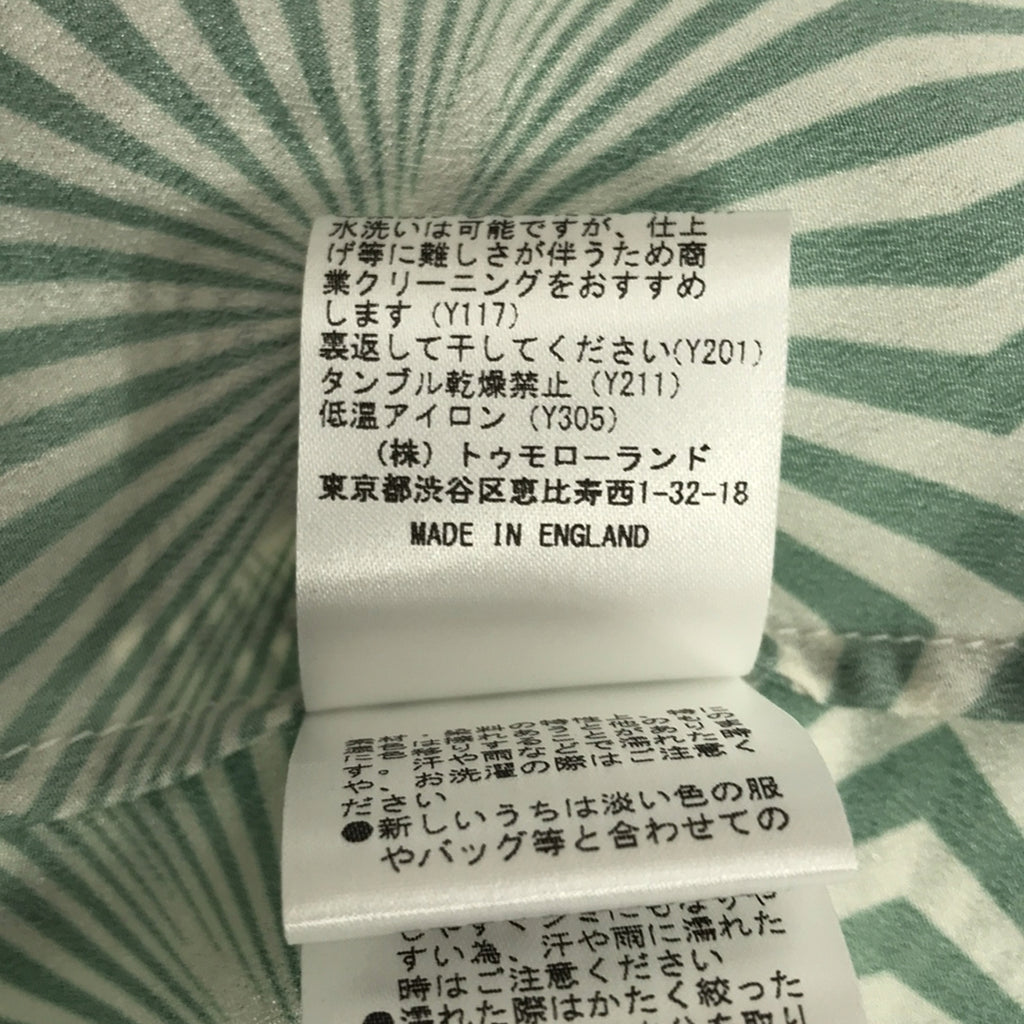 水洗いは可能ですが、仕上
げ等に難しさが伴うため商
業クリーニングをおすすめ
します (Y117)
裏返して干してください(Y201)
タンブル乾燥禁止 (Y211)
低温アイロン (Y305)
(株) トゥモローランド
東京都渋谷区恵比寿西1-32-18
MADE IN ENGLAND
ださい
●新しいうちは淡い色の服
やバッグ等と合わせての
すい為、汗や雨に濡れた
時はご注意ください
●濡れた際はかたく絞った